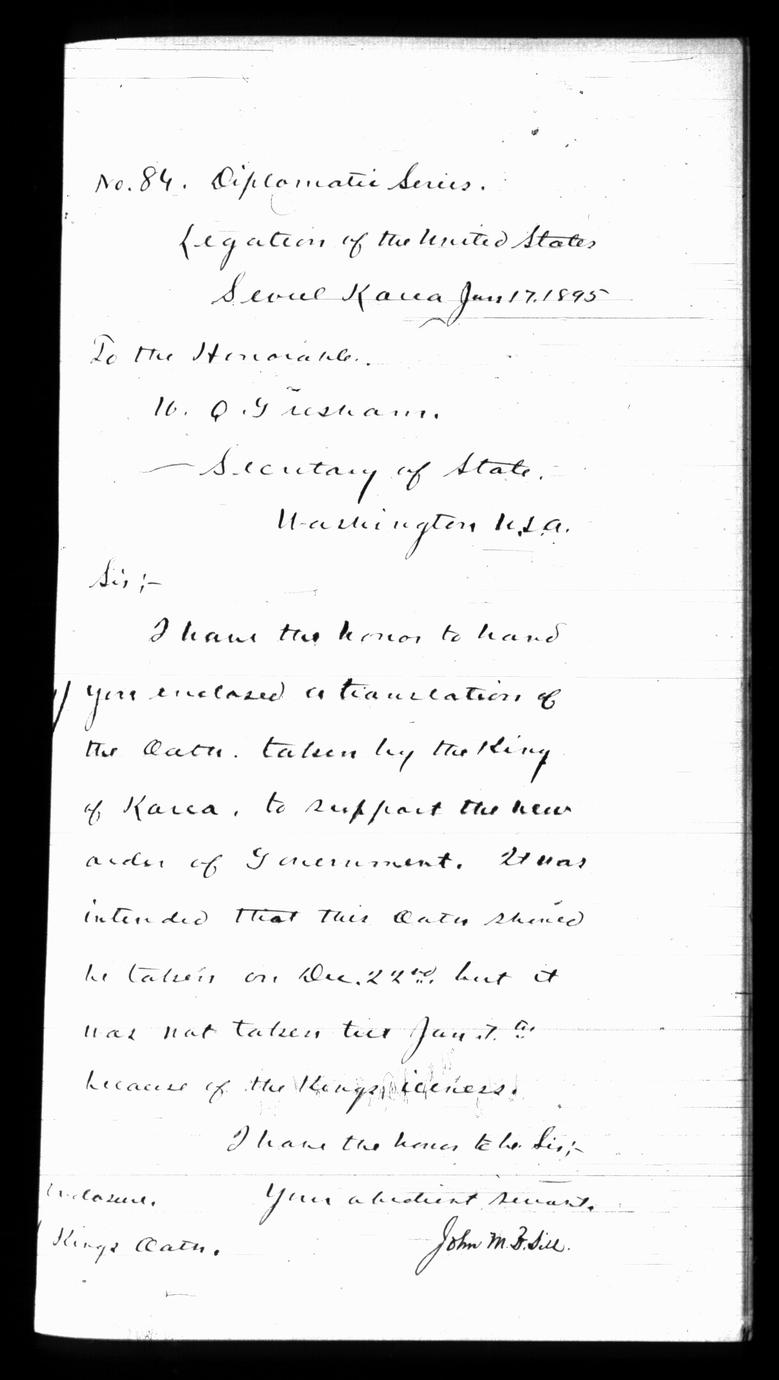 No. 84. Diplomatic Series.
Legation of the United States
Seoul Korea Jan 17. 1895
To the Honorable.
W. Q. Gresham.
Secretary of State.
Washington U.S.A.
Sir;-
I have the honor to hand
1/ you enclosed a translation of
the Oath. taken by the King
of Korea, to support the new
order of Government. It was
intended that this Oath should
be taken on Dec. 22nd. but it
was not taken till Jan. 7. th
because of the Kings illness.
I have the honor to be Sir;-
Enclosure. Your obedient servant.
1 Kings Oath. John M. B. Sill.